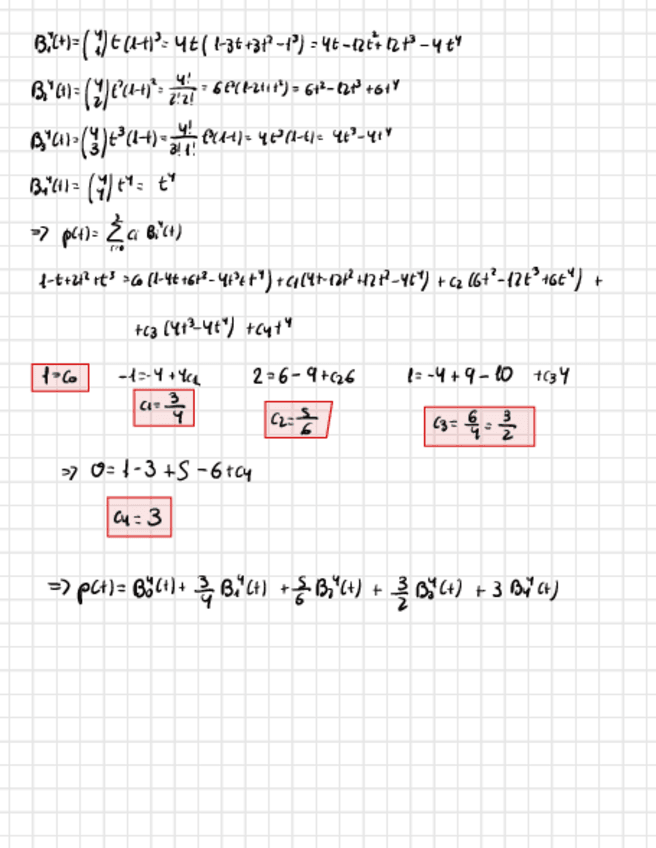 B₁⁴(t)=(4 1)t(1-t)³=4t(1-3t+3t²-t³)=4t-12t²+12t³-4t⁴
B₂⁴(t)=(4 2)t²(1-t)²=4!/2!2!=6t²(1-2t+t²)=6t²-12t³+6t⁴
B₃⁴(t)=(4 3)t³(1-t)=4!/3!1! t³(1-t)=4t³(1-t)=4t³-4t⁴
B₄⁴(t)=(4 4)t⁴=t⁴
=> p(t)=∑ ci Bi⁴(t)
1-t+2t²+t³=c₀(1-4t+6t²-4t³+t⁴)+c₁(4t-12t²+12t³-4t⁴)+c₂(6t²-12t³+6t⁴)+
+c₃(4t³-4t⁴)+c₄t⁴
1=c₀ -1=-4+4c₁ 2=6-9+c₂6 1=-4+9-10 +c₃4
c₁=3/4 c₂=5/6 c₃=6/4=3/2
=> 0=1-3+5-6+c₄
c₄=3
=> p(t)=B₀⁴(t)+3/4 B₁⁴(t)+5/6 B₂⁴(t)+3/2 B₃⁴(t)+3 B₄⁴(t)